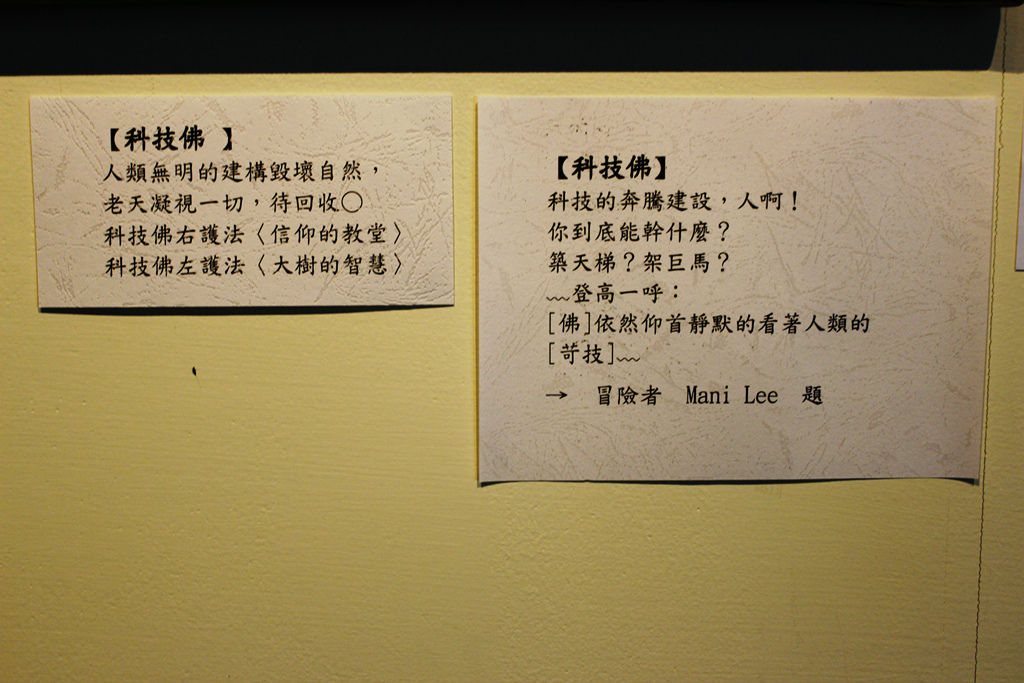 【科技佛 】
人類無明的建構毀壞自然，
老天凝視一切，待回收〇
科技佛右護法〈信仰的教堂〉
科技佛左護法〈大樹的智慧〉
【科技佛】
科技的奔騰建設，人啊！
你到底能幹什麼？
築天梯？架巨馬？
﹏登高一呼：
[佛]依然仰首靜默的看著人類的
[苛技]﹏
→　冒險者　Mani Lee　題